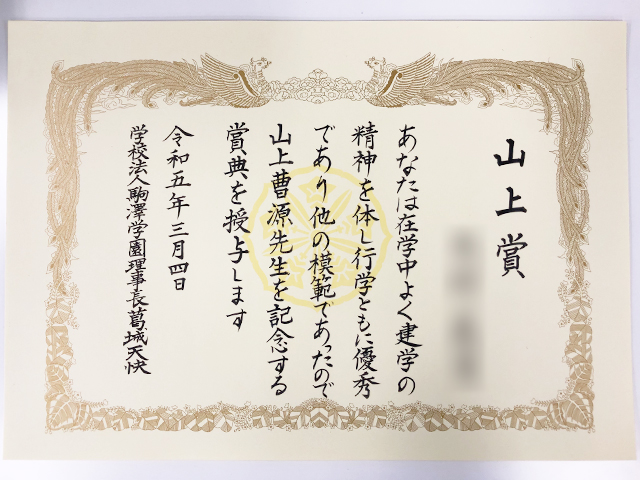 山上賞
あなたは在学中よく建学の
精神を体し行学ともに優秀
であり他の模範であったので
山上曹源先生を記念する
賞典を授与します
令和五年三月四日
学校法人駒澤学園理事長葛城天快